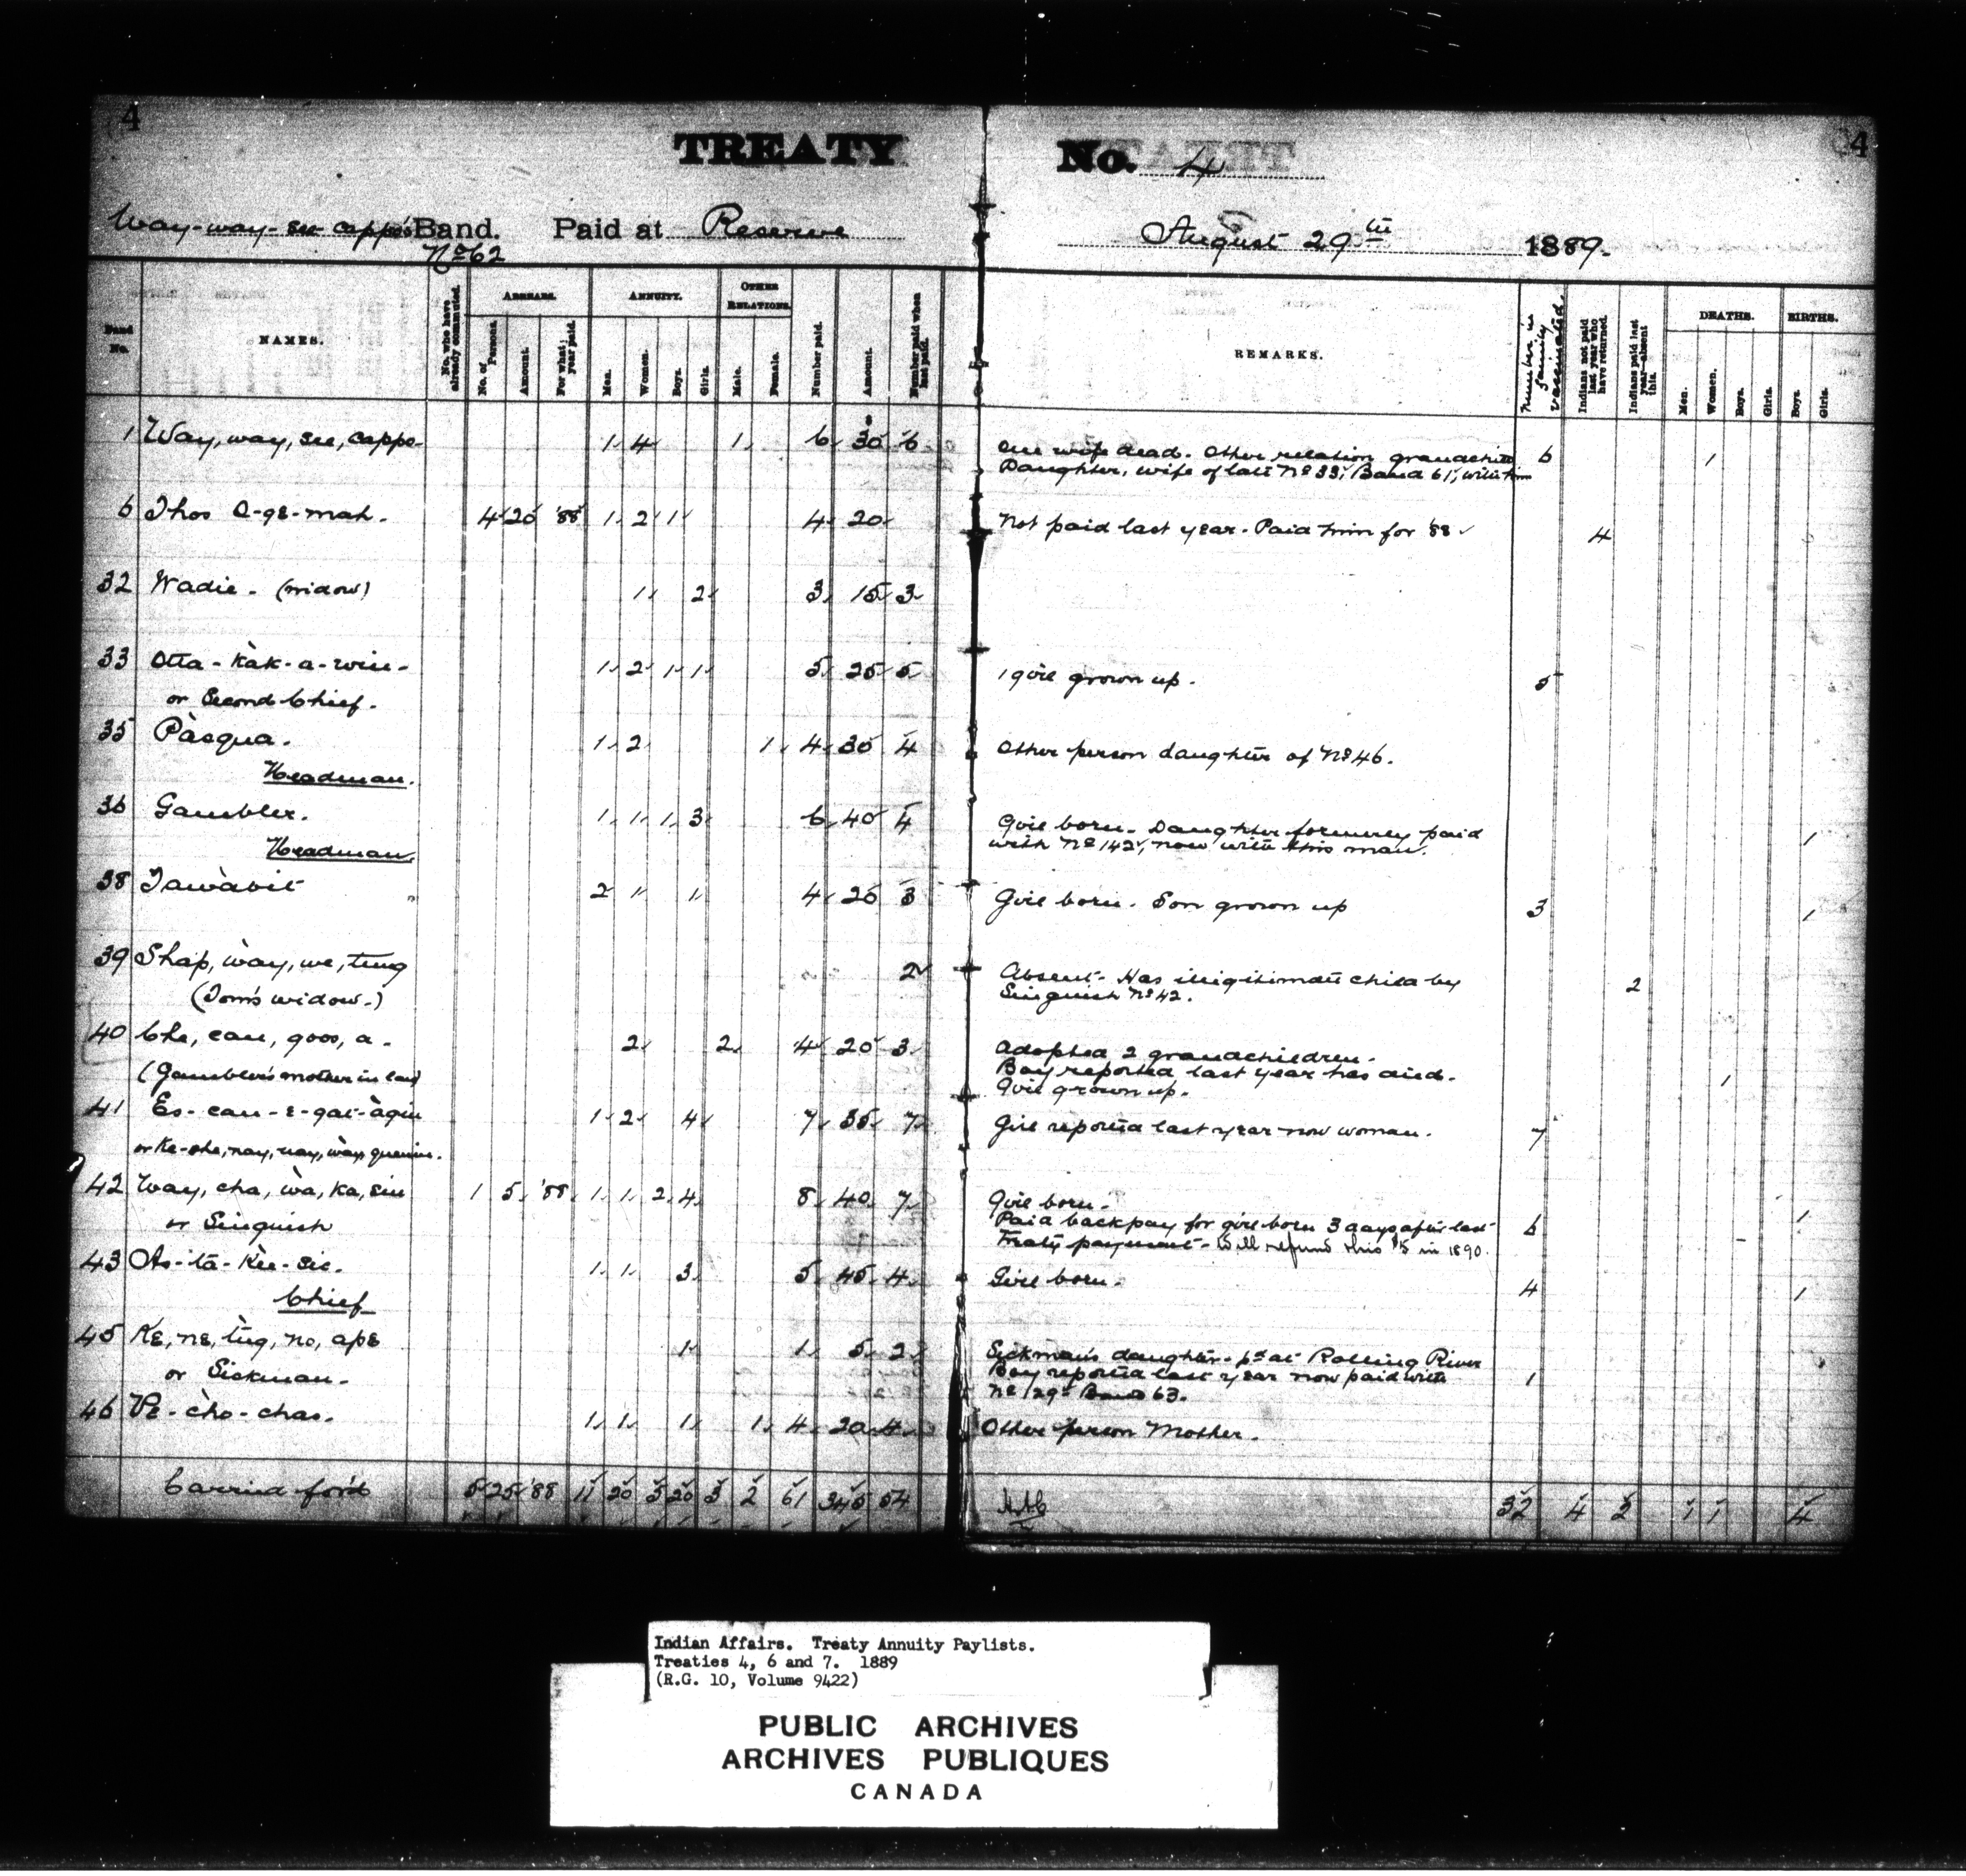 4
4
TREATY No. 4
Way-way-see-cappo's Band. Paid at Reserve August 29th 1889.
No 62
Band No.
NAMES.
No. who have already commuted.
ARREARS.
No. of Persons.
Amount.
For what year paid.
ANNUITY.
Men.
Women.
Boys.
Girls.
OTHER RELATIONS.
Male.
Female.
Number paid.
Amount.
Number paid when last paid.
REMARKS.
Number in family vaccinated.
Indians not paid last year who have returned.
Indians paid last year—absent this.
DEATHS.
Men.
Women.
Boys.
Girls.
BIRTHS.
Boys.
Girls.
1 Way, way, see, cappo- 1 4 1 6 30 6 One wife dead. Other relation grandchild 6 1
Daughter, wife of late No 33, Band 61, with him
6 Thos O-ge-mah. 4 20 '88 1 2 1 4 20 Not paid last year. Paid him for '88 4
32 Wadie. (widow) 1 2 3 15 3
33 Otta-kàk-a-win- 1 2 1 1 5 25 5 1 girl grown up. 5
or Second Chief.
35 Pàsqua. 1 2 1 4 30 4 Other person daughter of No 46.
Headman.
36 Gambler. 1 1 1 3 6 40 4 Girl born. Daughter formerly paid 1
with No 142, now with this man.
Headman.
38 Tawàbit " 2 1 1 4 20 3 Girl born. Son grown up 3 1
39 Shap, way, we, tung 2 Absent. Has illigitimate child by 2
(Tom's widow.) Singuish No 42.
40 Che, can, goos, a. 2 2 4 20 3 Adopted 2 grandchildren.
(Gambler's mother in law) Boy reported last year has died. 1
Girl grown up.
41 Es-can-e-gat-àgin 1 2 4 7 35 7 Girl reported last year now woman. 7
42 Way, cha, wà, ka, sin 1 5 '88 1 1 2 4 8 40 7 Girl born. 1
or Singuish Paid backpay for girl born 3 days after last 6
Treaty payment. Will refund this $5 in 1890.
43 As-tà-kee-sic. 1 1 3 5 45 4 Girl born. 4 1
Chief
45 Ke, ne, tug, no, ape 1 1 5 2 Sickman's daughter. pd at Rolling River
or Sickman. Boy reported last year now paid with 1
No 129 Band 63.
46 Pe-chò-chas. 1 1 1 1 4 20 4 Other person Mother.
Carried for'd 5 25 '88 11 20 5 20 3 2 61 345 54 32 4 2 1 1 4
Indian Affairs. Treaty Annuity Paylists.
Treaties 4, 6 and 7. 1889
(R.G. 10, Volume 9422)
PUBLIC ARCHIVES
ARCHIVES PUBLIQUES
CANADA